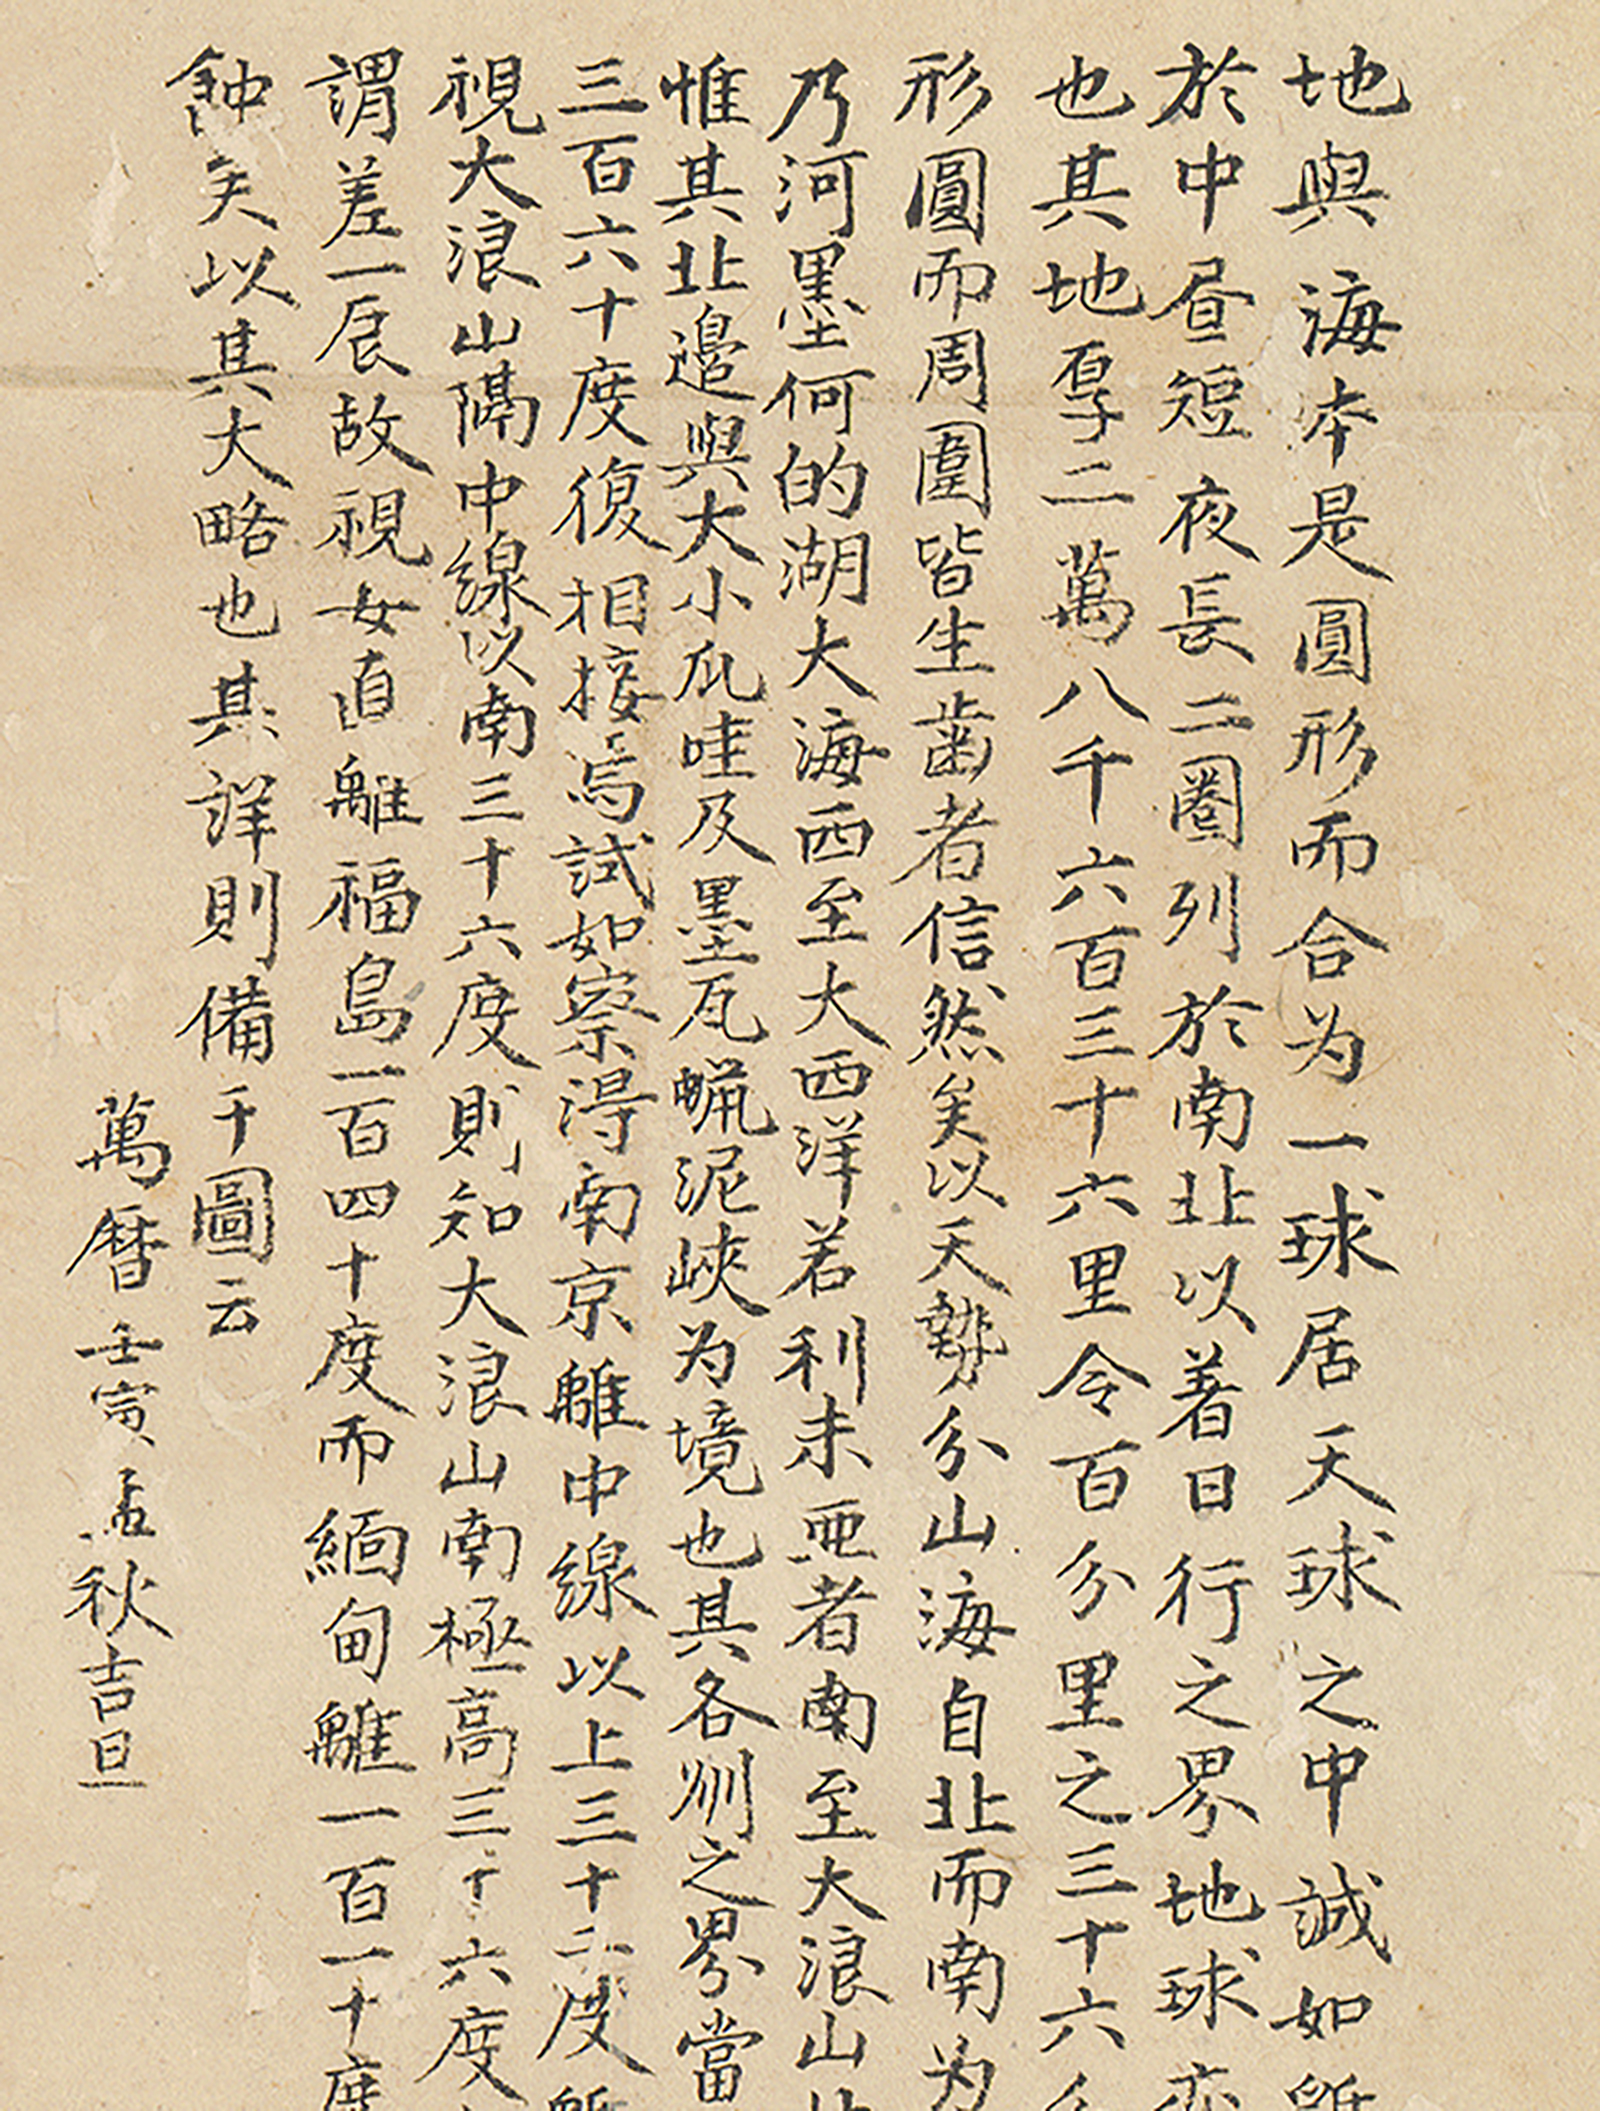 地與海本是圓形而合为一球居天球之中誠如
於中昼短夜長二圈列於南北以著日行之界地球
也其地厚二萬八千六百三十六里令百分里之三十六
形圓而周圍皆生齒者信然矣以天勢分山海自北而南为
乃河墨何的湖大海西至大西洋若利未亜者南至大浪山
惟其北邉與大小瓜哇及墨瓦蝋泥峽为境也其各州之界當
三百六十度復相接焉試如察得南京離中線以上三十二度
視大浪山隔中線以南三十六度則知大浪山南極高三十六度
謂差一辰故視女直離福島一百四十度而緬甸離一百一十度
蝕矣以其大略也其詳則備千圖云
萬暦壬寅孟秋吉旦